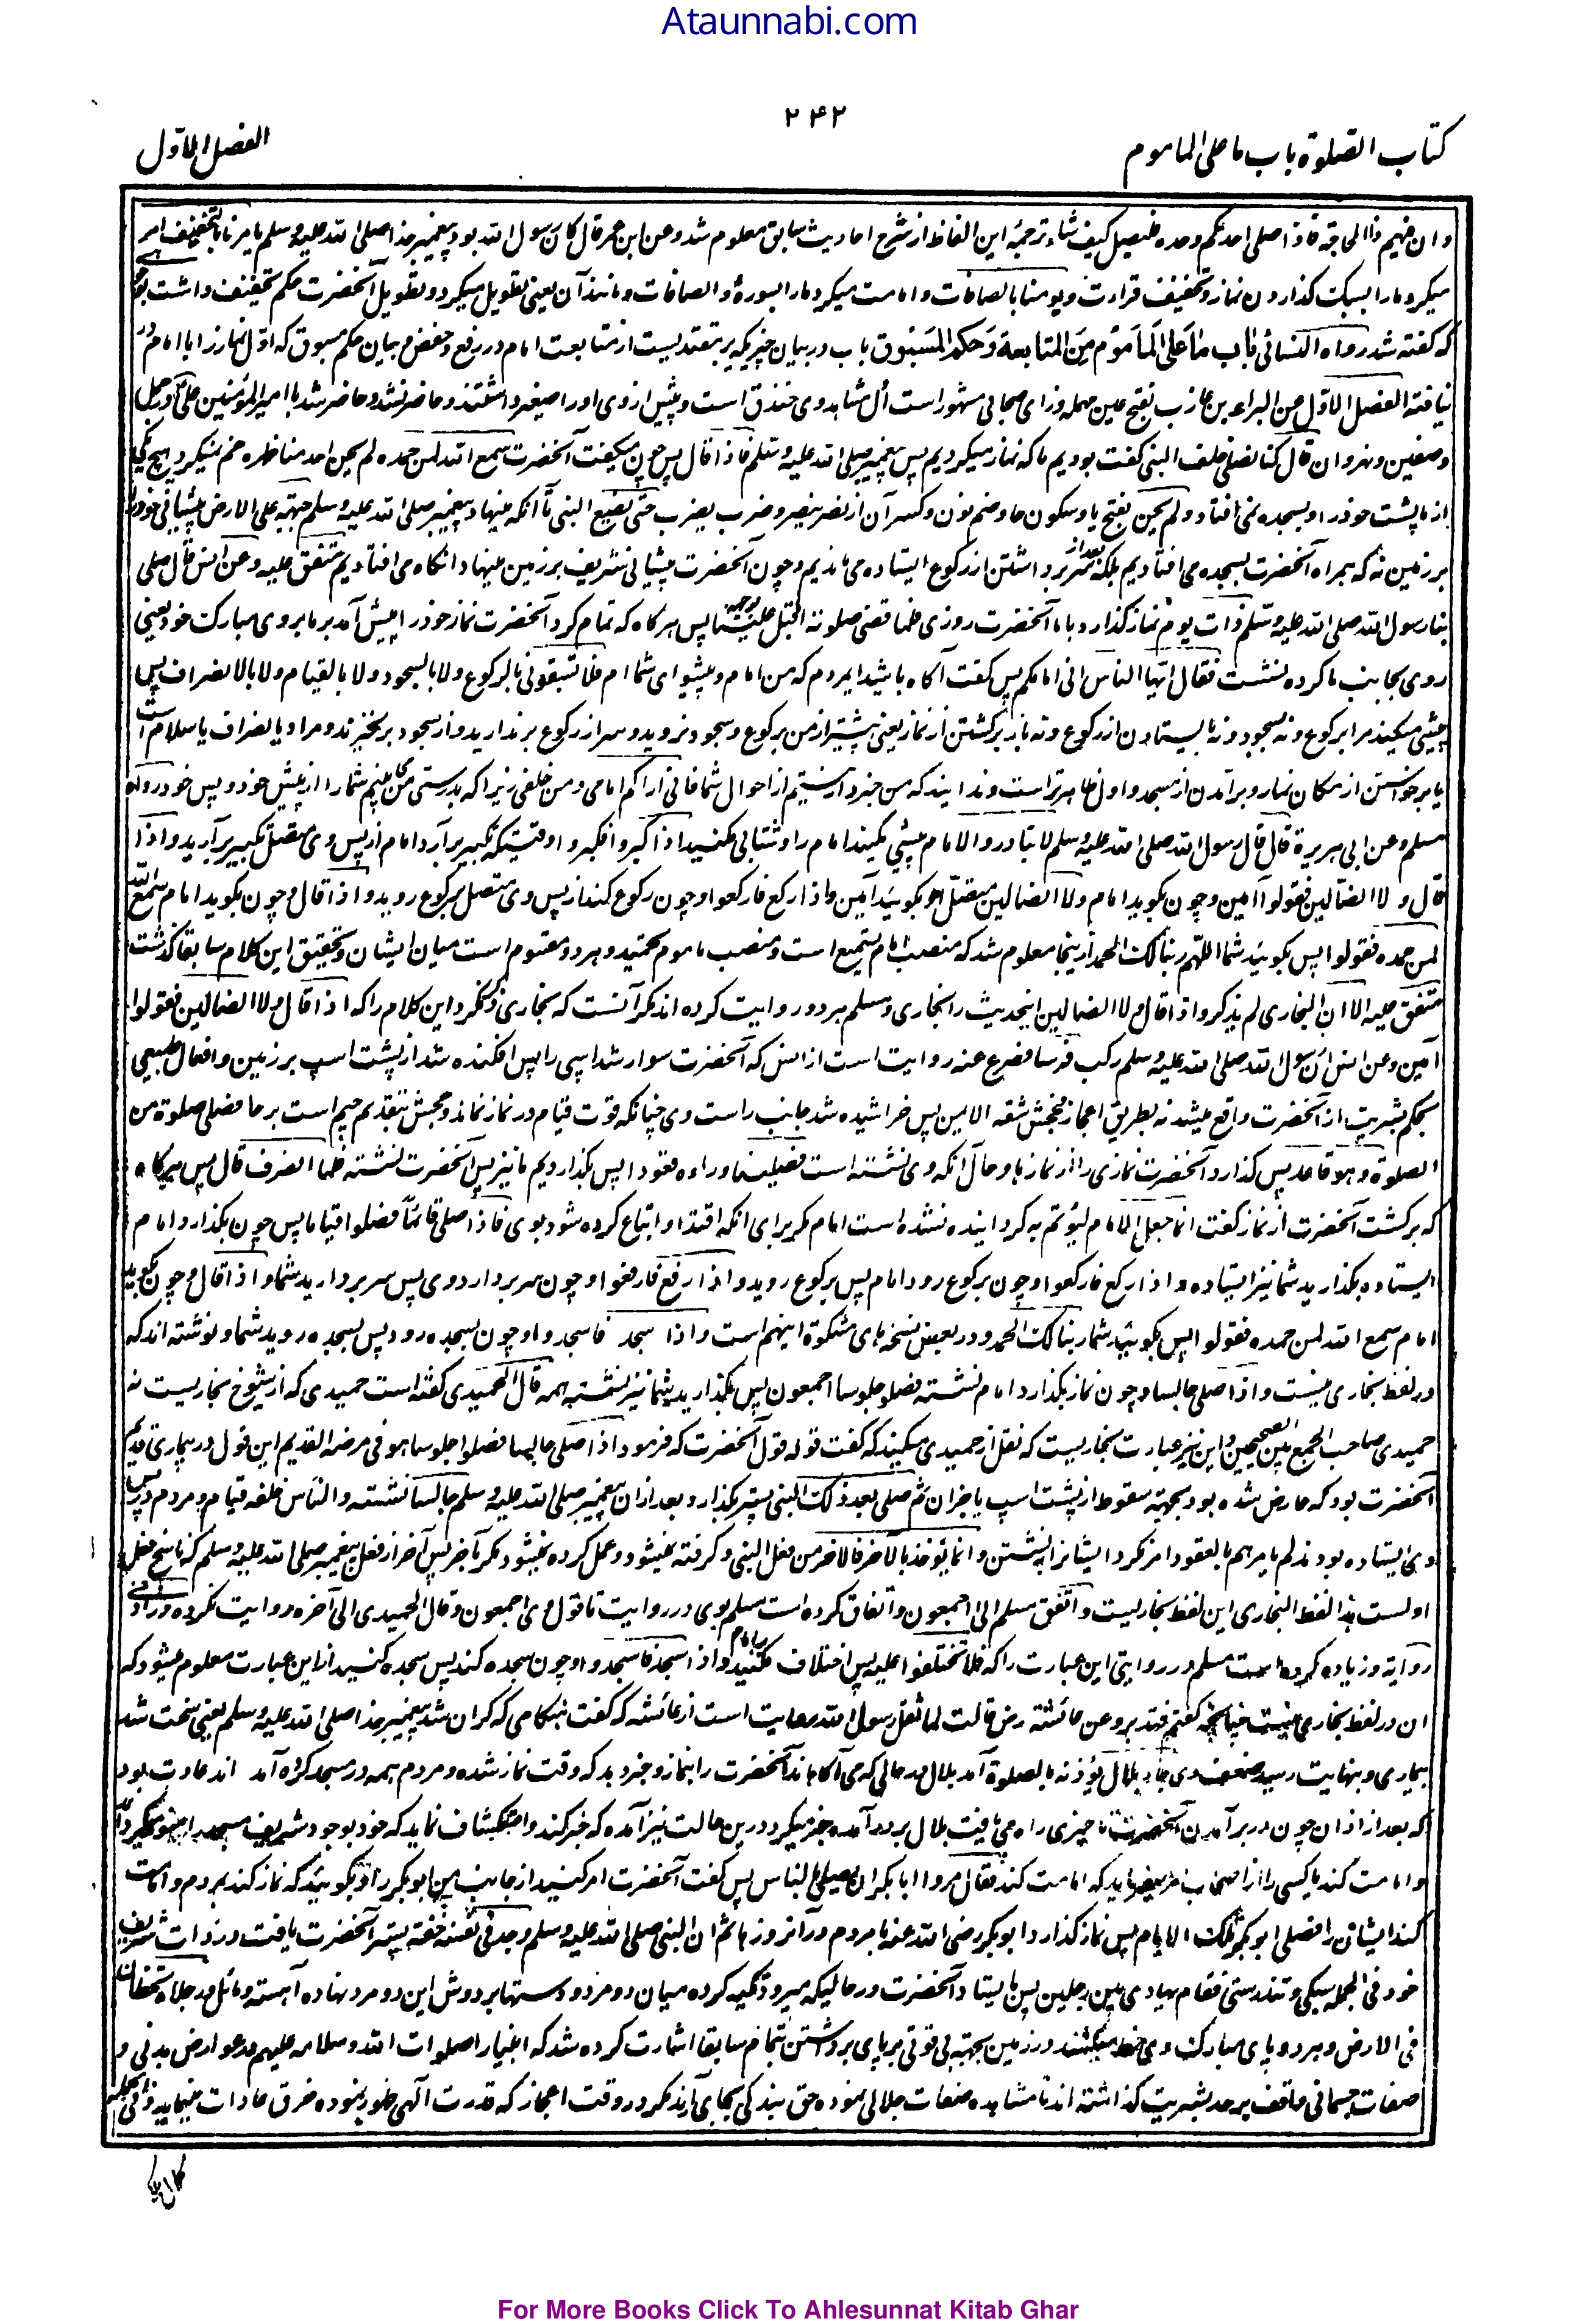 Ataunnabi.com
۲۴۲
کتاب الصلوة باب ما علی الماموم
الفصل الاوّل
و ان فیهم ذا الحاجة فاذا صلی احدکم وحده فلیصل کیف شاء ترجمهٔ این الفاظ از شرح احادیث سابق معلوم شد وعن ابن عمر قال کان رسول الله بود پیغمبر خدا صلی الله علیه وسلم یامرنا بالتخفیف امر
میکرد ما را بسبک گذاردن نماز و تخفیف قراءت ویومنا بالصافات و امامت میکرد ما را بسورهٔ والصافات و مانند آن یعنی تطویل میکرد و تطویل آنحضرت حکم تخفیف داشت
که گفته شد رواه النسائی باب ما علی الماموم من المتابعة وحکم المسبوق باب در بیان چیزیکه بر مقتدیست از متابعت امام در رفع و خفض و بیان حکم مسبوق که اوّل نماز را با امام در
نیافته الفصل الاوّل عن البراء بن عازب بفتح عین مهمله و زای صحابی مشهور است اول مشاهد وی خندق است و پیش ازوی او را صغیر داشتند و حاضر نشد و حاضر شد با امیرالمؤمنین علی در جمل
وصفین و نهروان قال کنا نصلی خلف النبی گفت بودیم ما که نماز میکردیم پس پیغمبر صلی الله علیه وسلم فاذا قال پس چون میگفت آنحضرت سمع الله لمن حمده لم یحن احد منا ظهره خم نمیکرد هیچ یکی
از ما پشت خود را و بسجده نمی افتاد و لم یحن بفتح یا و سکون حا و ضم نون و کسر آن از نصر ینصر و ضرب یضرب حتی یضع النبی تا آنکه می نهاد پیغمبر صلی الله علیه وسلم جبهته علی الارض پیشانی خود را
بر زمین نه که همراه آنحضرت بسجده می افتادیم بلکه بعد از سر برداشتن از رکوع ایستاده می ماندیم و چون آنحضرت پیشانی شریف بر زمین می نهاد آنگاه می افتادیم متفق علیه وعن انس قال صلی
بنا رسول الله صلی الله علیه وسلم ذات یوم نماز گذارد با ما آنحضرت روزی فلما قضی صلوته اقبل علینا بوجهه پس هرگاه که تمام کرد آنحضرت نماز خود را پیش آمد بر ما بروی مبارک خود یعنی
روی بجانب ما کرده بنشست فقال ایها الناس انی امامکم پس گفت آگاه باشید ای مردم که من امام و پیشوای شما ام فلا تسبقونی بالرکوع ولا بالسجود ولا بالقیام ولا بالانصراف پس
پیشی مکنید مرا برکوع و نه بسجود و نه بایستادن از رکوع و نه باز برگشتن از نماز یعنی پیشتر از من برکوع و سجود نروید و سر از رکوع برندارید و از سجود برنخیزید و مراد بانصراف یا سلام است
یا برخواستن از مکان نماز و برآمدن از مسجد و اول ظاهرتر است و ندانید که من خبردار نیستم از احوال شما فانی اراکم امامی و من خلفی زیرا که بدرستی من می بینم شما را از پیش خود و پس خود رواه
مسلم وعن ابی هریرة قال قال رسول الله صلی الله علیه وسلم لا تبادروا الامام پیشی مکنید امام را و شتابی مکنید اذا کبر فکبروا وقتیکه تکبیر برآرد امام از پس وی متصل تکبیر برآرید واذا
قال ولا الضالین فقولوا آمین و چون بگوید امام ولا الضالین متصل او بگوئید آمین واذا رکع فارکعوا و چون رکوع کند از پس وی متصل برکوع روید واذا قال و چون بگوید امام سمع الله
لمن حمده فقولوا پس بگوئید شما اللهم ربنا لک الحمد از ینجا معلوم شد که منصب امام تسمیع است و منصب ماموم تحمید و هر دو مقسوم است میان ایشان و تحقیق این کلام سابقا گذشت
متفق علیه الا ان البخاری لم یذکر واذا قال ولا الضالین اینحدیث را بخاری و مسلم هر دو روایت کرده اند مگر آنست که بخاری ذکر نکرد این کلام را که اذا قال ولا الضالین فقولوا
آمین وعن انس ان رسول الله صلی الله علیه وسلم رکب فرسا فصرع عنه روایت است از انس که آنحضرت سوار شد اسپی را پس افکنده شد از پشت اسپ بر زمین و افعال طبیعی
بحکم بشریت از آنحضرت واقع میشد نه بطریق اعجاز فجحش شقه الایمن پس خراشیده شد جانب راست وی چنانکه قوت قیام در نماز نماند و جحش بتقدیم جیم است بر حا فصلی صلوة من
الصلوة وهو قاعد پس گذارد آنحضرت نمازی را از نمازها و حال آنکه وی نشسته است فصلینا وراءه قعودا پس بگذاردیم ما نیز پس آنحضرت نشسته فلما انصرف قال پس هرگاه
که برگشت آنحضرت از نماز گفت انما جعل الامام لیؤتم به گردانیده نشده است امام مگر برای آنکه اقتدا و اتباع کرده شود بوی فاذا صلی قائما فصلوا قیاما پس چون بگذارد امام
ایستاده بگذارید شما نیز ایستاده واذا رکع فارکعوا و چون برکوع رود امام پس برکوع روید واذا رفع فارفعوا و چون سر بردارد وی پس سر بردارید شما واذا قال و چون بگوید
امام سمع الله لمن حمده فقولوا پس بگوئید شما ربنا لک الحمد و در بعض نسخه های مشکوة اینهم است واذا سجد فاسجدوا و چون بسجده رود پس بسجده روید شما و نوشته اند که
در لفظ بخاری نیست واذا صلی جالسا و چون نماز بگذارد امام نشسته فصلوا جلوسا اجمعون پس بگذارید شما نیز نشسته همه قال الحمیدی گفته است حمیدی که از شیوخ بخاریست نه
حمیدی صاحب الجمع بین الصحیحین و این نیز عبارت بخاریست که نقل از حمیدی میکند که گفت قوله قول آنحضرت که فرمود اذا صلی جالسا فصلوا جلوسا هو فی مرضه القدیم این قول در بیماری قدیم
آنحضرت بود که عارض شده بود بجهة سقوط از پشت اسپ یا جز آن ثم صلی بعد ذلک النبی پستر بگذارد بعد از ان پیغمبر صلی الله علیه وسلم جالسا نشسته والناس خلفه قیام و مردم در پس
وی ایستاده بودند لم یامرهم بالقعود امر نکرد ایشانرا بنشستن وانما یؤخذ بالآخر فالآخر من فعل النبی و گرفته نمیشود و عمل کرده نمیشود مگر بآخر پس آخر از فعل پیغمبر صلی الله علیه وسلم که ناسخ فعل
اولست هذا لفظ البخاری این لفظ بخاریست واتفق مسلم الی اجمعون و اتفاق کرده است مسلم بوی در روایت تا قول وی اجمعون و قال الحمیدی الی آخره روایت نکرده وزاد فی
روایة و زیاده کرده است مسلم در روایتی این عبارت را که فلا تختلفوا علیه پس اختلاف مکنید بر امام واذا سجد فاسجدوا و چون سجده کند پس سجده کنید از این عبارت معلوم میشود که
ان در لفظ بخاری نیست چنانچه گفتیم فتدبر وعن عائشة رض قالت لما ثقل رسول الله روایت است از عائشه که گفت هنگامی که گران شد پیغمبر خدا صلی الله علیه وسلم یعنی سخت شد
بیماری و بنهایت رسید ضعف وی جاء بلال یؤذنه بالصلوة آمد بلال در حالی که می آگاهاند آنحضرت را بنماز و خبر دهد که وقت نماز شده و مردم همه در مسجد گرد آمد اند عادت بود
که بعد از اذان چون در برآمدن آنحضرت تاخیری راه می یافت بلال بر در آمده خبر میکرد درین حالت نیز آمده که خبر کند و استکشاف نماید که خود بوجود شریف مسجد را منور میگرداند
و امامت کند یا کسی را از اصحاب میفرماید که امامت کند فقال مروا ابا بکر ان یصلی بالناس پس گفت آنحضرت امر کنید از جانب من ابوبکر را و بگوئید که نماز کند بمردم و امامت
کند ایشان را فصلی ابوبکر تلک الایام پس نماز گذارد ابوبکر رضی الله عنه با مردم در آنروزها ثم ان النبی صلی الله علیه وسلم وجد فی نفسه خفة پستر آنحضرت یافت در ذات شریف
خود فی الجمله سبکی و تندرستی فقام یهادی بین رجلین پس بایستاد آنحضرت در حالیکه میرود تکیه کرده میان دو مرد و دستها بر دوش این دو مرد نهاده آهسته و مائل ورجلاه تخطان
فی الارض و هر دو پای مبارک وی خط میکشند در زمین بجهة بی قوتی بر پای برداشتن تمام سابقا اشارت کرده شد که انبیا را صلوات الله و سلامه علیهم در عوارض بدنی و
صفات جسمانی واقف بر حد بشریت گذاشته اند تا مشاهده صفات جلالی نموده حق بندگی بجای آرند مگر در وقت اعجاز که قدرت الهی ظهور نموده خرق عادات مینماید
For More Books Click To Ahlesunnat Kitab Ghar